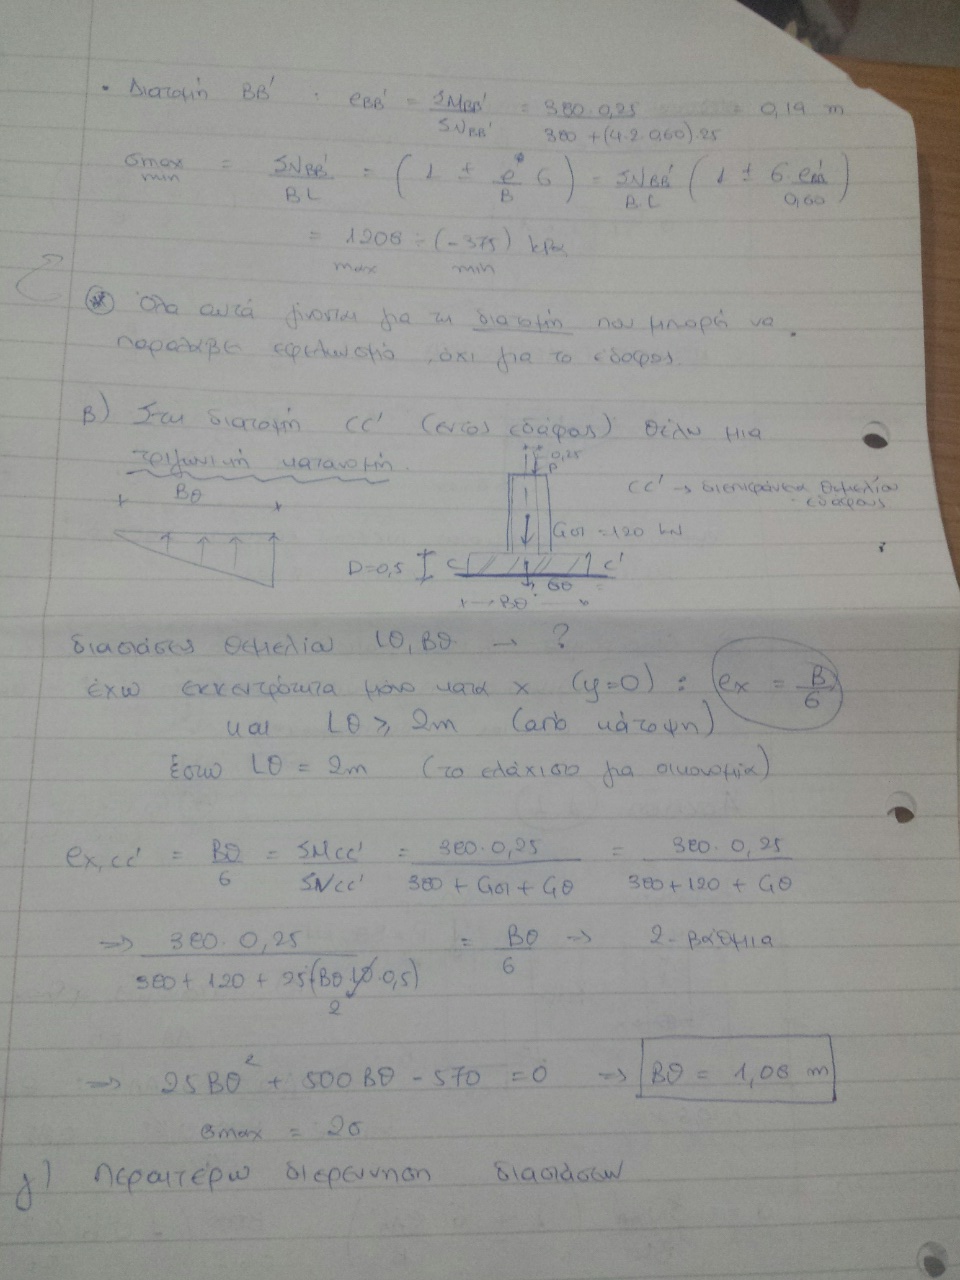 • Διατομή ΒΒ' . eΒΒ' = ΣΜΒΒ' / ΣΝΒΒ' = 380·0,25 / 380+(4·2·0,60)·25 = 0,19 m
σmax min = ΣΝΒΒ' / BL = ( 1 ± e/B 6 ) = ΣΝΒΒ' / BL ( 1 ± 6·eΒΒ' / 0,60 )
= 1208 ÷ (-375) kPa
max min
* Όλα αυτά γίνονται για τη διατομή που μπορεί να
παραλάβει εφελκυσμό, όχι για το έδαφος.
β) Στη διατομή CC' (εντός εδάφους) θέλω μια
τριγωνική κατανομή.
Βθ
0,25
P
CC' → διεπιφάνεια θεμελίου
εδάφους
Gστ = 120 kN
D=0,5 C C'
Gθ
Βθ
διαστάσεις θεμελίου Lθ, Βθ → ?
έχω εκκεντρότητα μόνο κατά x (y=0) : ex = B/6
και Lθ ≥ 2m (από κάτοψη)
έστω Lθ = 2m (το ελάχιστο για οικονομία)
ex,cc' = Βθ/6 = ΣΜcc' / ΣΝcc' = 380·0,25 / 380 + Gστ + Gθ = 380·0,25 / 380+120 + Gθ
⇒ 380·0,25 / 380+120+25(Βθ·Lθ·0,5) = Βθ/6 → 2-βάθμια
2
⇒ 25Βθ² + 500Βθ - 570 = 0 ⇒ Βθ = 1,08 m
σmax = 2σ
γ) Περαιτέρω διερεύνηση διαστάσεων